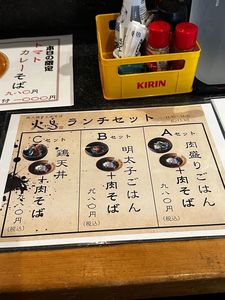 本日の限定
トマト
カレーそば
九八〇円
付 一〇〇〇円
KIRIN
ランチセット
Aセット
肉盛りごはん
+肉そば
九八〇円
(税込)
Bセット
明太子ごはん
+肉そば
九八〇円
(税込)
Cセット
鶏天丼
+肉そば
九八〇円
(税込)